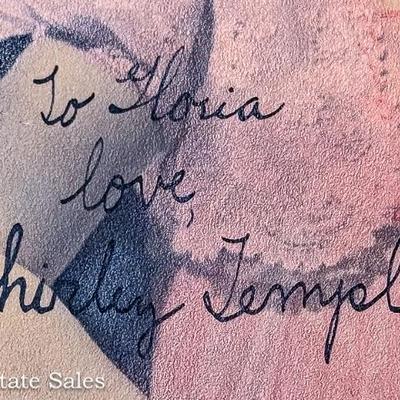 To Gloria
love,
hirley Templ
tate Sales